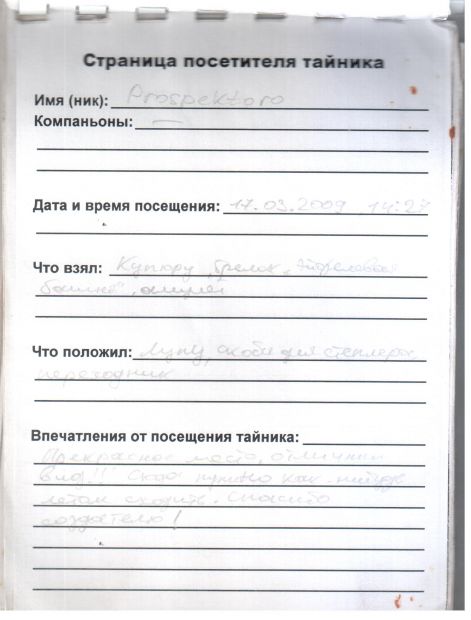 Страница посетителя тайника
Имя (ник): Prospektoro
Компаньоны: —
Дата и время посещения: 17.03.2009 14:27
Что взял: Купюру, брелок "Эйфелевая
башня",
Что положил: Лупу, скобы для степлера,
переходник
Впечатления от посещения тайника:
Прекрасное место, отличный
вид!! Сюда нужно как-нибудь
летом сходить. Спасибо
создателю!